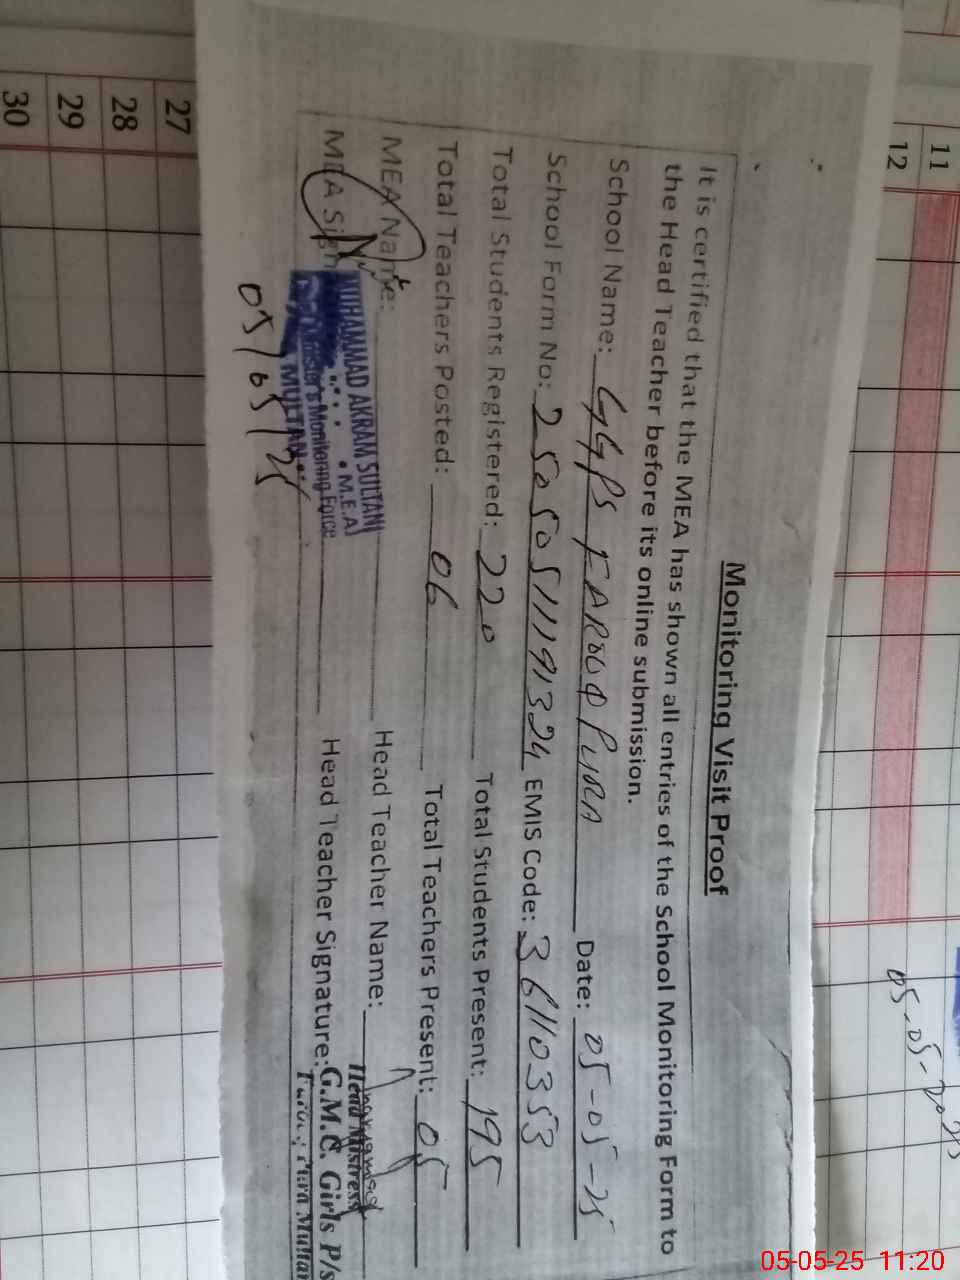 Monitoring Visit Proof
It is certified that the MEA has shown all entries of the School Monitoring Form to
the Head Teacher before its online submission.
School Name: GGPS FAROUQ PURA Date: 05-05-25
School Form No: 25050511191324 EMIS Code: 36110353
Total Students Registered: 220 Total Students Present: 195
Total Teachers Posted: 06 Total Teachers Present: 05
MEA Name: Head Teacher Name:
MEA Sign Head Teacher Signature:
MUHAMMAD AKRAM SULTANI
M.E.A)
Monitoring Force
MULTAN
05/05/25
Head Mistress
G.M.C. Girls P/s
Pura Multan
11
12
27
28
29
30
05-05-2025
05-05-25 11:20